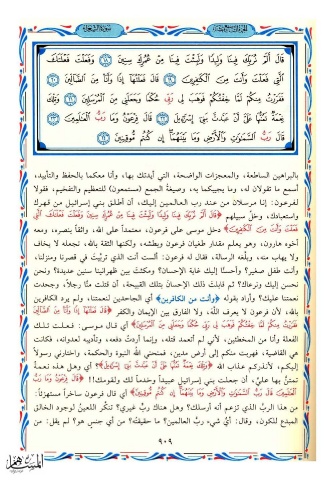 قَالَ أَلَمْ نُرَبِّكَ فِينَا وَلِيدًا وَلَبِثْتَ فِينَا مِنْ عُمُرِكَ سِنِينَ ١٨ وَفَعَلْتَ فَعْلَتَكَ
الَّتِي فَعَلْتَ وَأَنتَ مِنَ الْكَافِرِينَ ١٩ قَالَ فَعَلْتُهَا إِذًا وَأَنَا مِنَ الضَّالِّينَ ٢٠
فَفَرَرْتُ مِنكُمْ لَمَّا خِفْتُكُمْ فَوَهَبَ لِي رَبِّي حُكْمًا وَجَعَلَنِي مِنَ الْمُرْسَلِينَ ٢١ وَتِلْكَ
نِعْمَةٌ تَمُنُّهَا عَلَيَّ أَنْ عَبَّدتَّ بَنِي إِسْرَائِيلَ ٢٢ قَالَ فِرْعَوْنُ وَمَا رَبُّ الْعَالَمِينَ ٢٣
قَالَ رَبُّ السَّمَاوَاتِ وَالْأَرْضِ وَمَا بَيْنَهُمَا إِن كُنتُم مُّوقِنِينَ ٢٤
بالبراهين الساطعة، والمعجزات الواضحة، التي أيدتك بها، وأنا معكما بالحفظ والتأييد،
أسمع ما تقولان له، وما يجيبكما به، وصيغةُ الجمع (مستمعون) للتعظيم والتفخيم، فقولا
لفرعون: إنا مرسلان من عند رب العالمين إليك، أن أطلق بني إسرائيل من قهرك
واستعبادك، وخلِّ سبيلهم ﴿قَالَ أَلَمْ نُرَبِّكَ فِينَا وَلِيدًا وَلَبِثْتَ فِينَا مِنْ عُمُرِكَ سِنِينَ وَفَعَلْتَ فَعْلَتَكَ الَّتِي
فَعَلْتَ وَأَنتَ مِنَ الْكَافِرِينَ﴾ دخل موسى على فرعون، معتمداً على الله، واثقاً بنصره، ومعه
أخوه هارون، وهو يعلم مقدار طغيان فرعون وبطشه، ولكنها الثقة بالله، تجعله لا يخاف
ولا يهاب منه، وبلَّغه الرسالة، فقال له فرعون: ألستَ أنت الذي تربَّيتَ في قصرنا ومنزلنا،
وأنت طفل صغير؟ وأحسنَّا إليك غاية الإحسان؟ ومكثتَ بين ظهرانينا سنين عديدة؟ ونحن
نحسن إليك ونرعاك؟ ثم قابلتَ ذلك الإحسانَ بتلك القبيحة، أن قتلتَ منَّا رجلاً، وجحدت
نعمتنا عليك؟ وأراد بقوله ﴿وأنت من الكافرين﴾ أي الجاحدين لنعمتنا، ولم يرد الكافرين
بالله، لأن فرعون لا يعرف اللَّه، ولا الفارق بين الإيمان والكفر ﴿قَالَ فَعَلْتُهَا إِذًا وَأَنَا مِنَ الضَّالِّينَ
فَفَرَرْتُ مِنكُمْ لَمَّا خِفْتُكُمْ فَوَهَبَ لِي رَبِّي حُكْمًا وَجَعَلَنِي مِنَ الْمُرْسَلِينَ﴾ أي قال موسى: فعلت تلك
الفعلة وأنا من المخطئين، لأني لم أتعمد قتله، وإنما أردتُ دفعه، وتأديبه لعدوانه، فكانت
هي القاضية، فهربت منكم إلى أرض مدين، فمنحني الله النبوة والحكمة، واختارني رسولاً
إليكم، لأنذركم عذاب الله ﴿وَتِلْكَ نِعْمَةٌ تَمُنُّهَا عَلَيَّ أَنْ عَبَّدتَّ بَنِي إِسْرَائِيلَ﴾ أي وهل هذه نعمة
تمتنُّ بها عليَّ، أن جعلت بني إسرائيل عبيداً وخدماً لك ولقومك!! ﴿قَالَ فِرْعَوْنُ وَمَا رَبُّ
الْعَالَمِينَ. قَالَ رَبُّ السَّمَاوَاتِ وَالْأَرْضِ وَمَا بَيْنَهُمَا إِن كُنتُم مُّوقِنِينَ﴾ أي قال فرعون ساخراً مستهزئاً:
من هذا الربُّ الذي تزعم أنه أرسلك؟ وهل هناك ربٌّ غيري؟ تنكَّر اللعينُ لوجود الخالق
المبدع للكون، وقال: أيُّ شيء ربُّ العالمين؟ ما حقيقتُه؟ من أي جنسٍ هو؟ لم يقل: من
٩٠٩